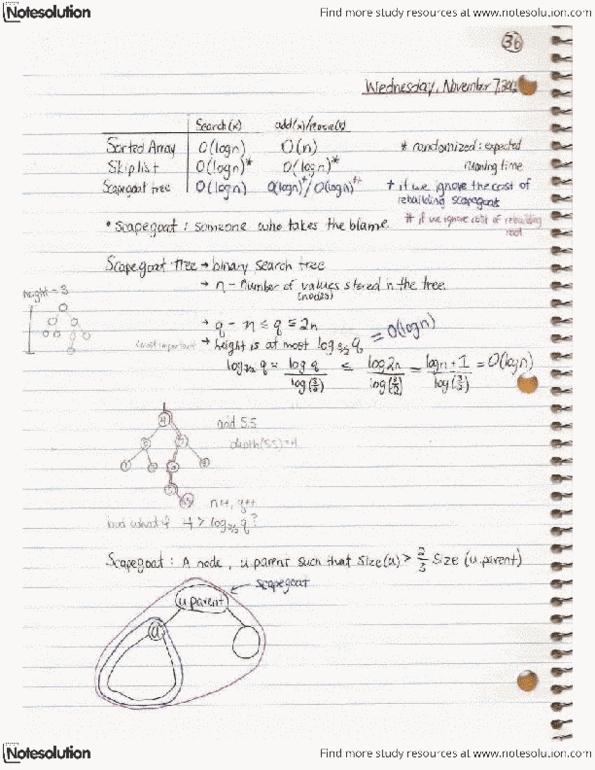 Notesolution
Find more study resources at www.notesolution.com
36
Wednesday, November 7,
Search(x) add(x)/remove(x)
Sorted Array O(logn) O(n)
Skiplist O(logn)* O(logn)*
* randomized: expected
running time
Scapegoat tree O(logn) O(logn)
† if we ignore the cost of
rebuilding scapegoat
• Scapegoat : someone who takes the blame.
if we ignore cost of rebuilding
root
Scapegoat Tree → binary search tree
→ n - Number of values stored in the tree.
(nodes)
height = 3
→ q - n ≤ q ≤ 2n
(most important) → height is at most log3/2 q = O(logn)
log3/2 q = log q / log(3/2) ≤ log2n / log(3/2) = logn + 1 / log(3/2) = O(logn)
add 5.5
depth(5.5)=4
n++, q++
but what if 4 > log3/2 q?
Scapegoat : A node, u.parent such that Size(u) > 2/3 Size (u.parent)
scapegoat
u.parent
u
Notesolution
Find more study resources at www.notesolution.com